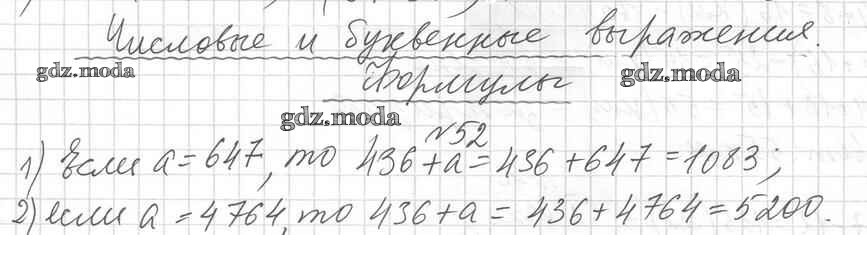 Числовые и буквенные выражения.
gdz.moda
Формулы
gdz.moda
gdz.moda
№52
1) Если a = 647, то 436 + a = 436 + 647 = 1083;
2) если a = 4764, то 436 + a = 436 + 4764 = 5200.